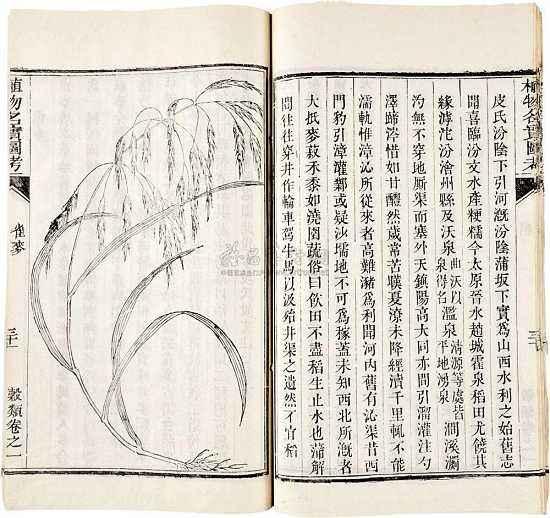 植物名實圖考
皮氏汾陰下引河漑汾陰蒲坂下實爲山西水利之始舊志
聞喜臨汾文水產粳糯今太原晉水趙城霍泉稻田尤饒其
緣滹沱汾澮州縣及沃泉曲沃以泉得名濫泉清源等處皆平地湧泉澗溪瀾
汋無不穿地厮渠而塞外天鎮陽高大同亦間引溜灌注勺
澤蹏涔惜如甘醴然歲常苦暵夏潦未降經瀆千里輒不能
濡軌惟漳沁所從來者高難瀦爲利聞河內舊有沁渠昔西
門豹引漳灌鄴或疑沙壖地不可爲稼蓋未知西北所漑者
大抵麥菽禾黍如澆園蔬俗曰飮田不盡稻生止水也蒲解
間往往穿井作輪車駕牛馬以汲殆井渠之遺然不宜稻
植物名實圖考
雀麥
穀類卷之一